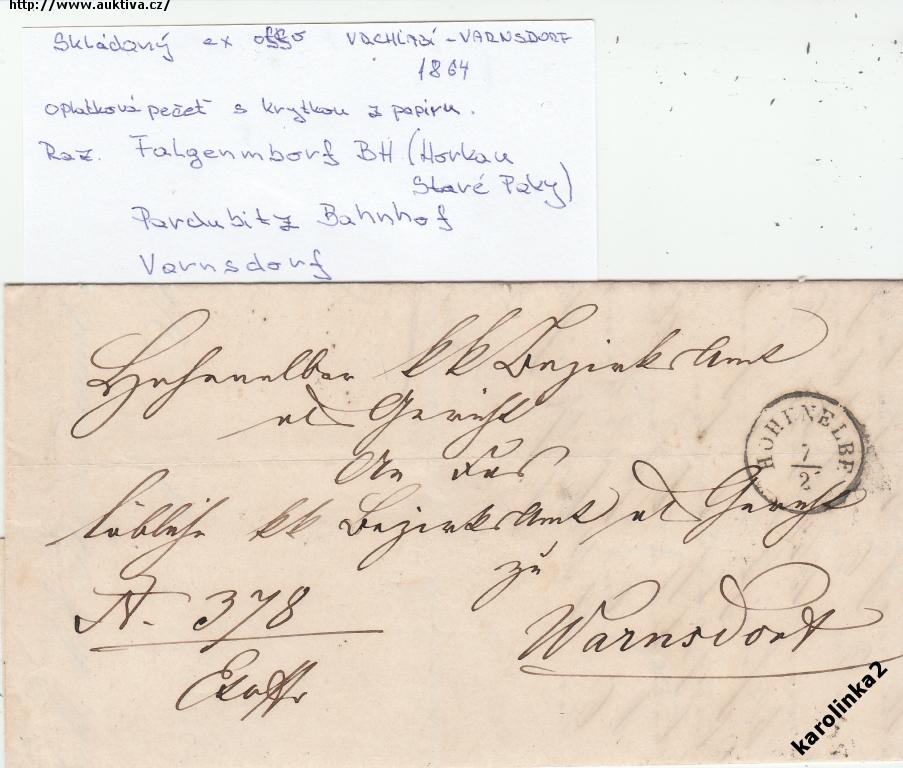 http://www.auktiva.cz/
Skládaný ex offo VRCHLABÍ - VARNSDORF
1864
oplatková pečeť s krytkou z papíru.
Raz. Falgenmborf BH (Horkau
Staré Paky)
Pardubitz Bahnhof
Varnsdorf
Hohenelber kk Bezirksamt
als Gericht
An das
löbliche kk Bezirksamt als Gericht
zu
N. 378
Warnsdorf
Exoffo
HOHENELBE
7
2
karolinka2